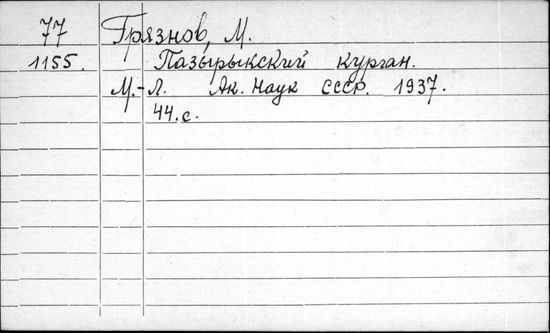 77 Грязнов, М.
1155. Пазырыкский курган.
М.-Л. Ак. Наук СССР. 1937.
44.с.